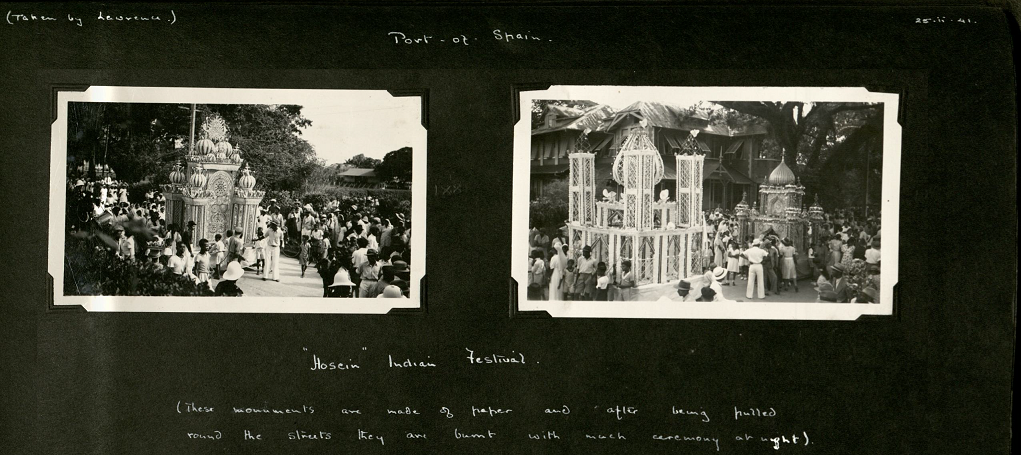 (Taken by Lawrence.)
25-ii-41.
Port-of-Spain.
"Hosein" Indian Festival.
(These monuments are made of paper and after being pulled
round the streets they are burnt with much ceremony at night).